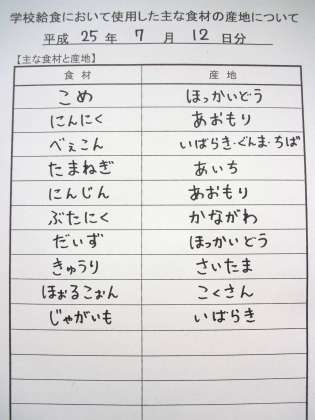 学校給食において使用した主な食材の産地について
平成 25 年 7 月 12 日分
【主な食材と産地】
食材 産地
こめ ほっかいどう
にんにく あおもり
べぇこん いばらき・ぐんま・ちば
たまねぎ あいち
にんじん あおもり
ぶたにく かながわ
だいず ほっかいどう
きゅうり さいたま
ほぉるこぉん こくさん
じゃがいも いばらき